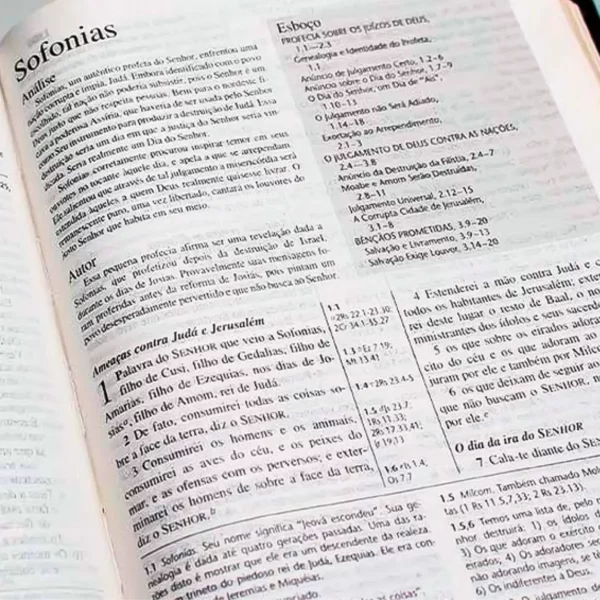 Sofonias
Análise
Sofonias, um autêntico profeta do Senhor, enfrentou uma
nação corrupta e ímpia, Judá. Embora identificado com o povo
escolhido, tal nação não poderia subsistir, pois o Senhor é um
Deus justo que não respeita pessoas. Bem para o nordeste fi-
cava a poderosa Assíria, que haveria de ser usada pelo Senhor
como Seu instrumento para produzir a destruição de Judá. Essa
destruição seria um dia em que a justiça do Senhor seria vin-
dicada. Seria realmente um Dia do Senhor.
Sofonias corretamente procurou inspirar temor em seus
ouvintes no tocante àquele dia, e apela a que se arrependam.
Ele salientou que através de tal julgamento a misericórdia será
estendida àqueles a quem Deus realmente quisesse livrar. O
remanescente puro, uma vez libertado, cantará os louvores do
Senhor que habita em seu meio.
Autor
Essa pequena profecia afirma ser uma revelação dada a
Sofonias, que profetizou depois da destruição de Israel,
durante os dias de Josias. Provavelmente suas mensagens fo-
ram proferidas antes da reforma de Josias, pois pintam um
povo desesperadamente pervertido e que não busca ao Senhor.
Esboço
PROFECIA SOBRE OS JUÍZOS DE DEUS,
1.1—2.3
Genealogia e Identidade do Profeta,
1.1
Anúncio de Julgamento Certo, 1.2-6
Anúncio sobre o Dia do Senhor, 1.7-9
O Dia do Senhor, um Dia de "Ais",
1.10-13
O Julgamento não Será Adiado,
1.14-18
Exortação ao Arrependimento,
2.1-3
O JULGAMENTO DE DEUS CONTRA AS NAÇÕES,
2.4—3.8
Anúncio da Destruição da Filístia, 2.4-7
Moabe e Amom Serão Destruídas,
2.8-11
Julgamento Universal, 2.12-15
A Corrupta Cidade de Jerusalém,
3.1-8
BENÇÃOS PROMETIDAS, 3.9-20
Salvação e Livramento, 3.9-13
Salvação Exige Louvor, 3.14-20
Ameaças contra Judá e Jerusalém
1 Palavra do SENHOR que veio a Sofonias,
filho de Cusi, filho de Gedalias, filho de
Amarias, filho de Ezequias, nos dias de Jo-
sias, filho de Amom, rei de Judá.
2 De fato, consumirei todas as coisas so-
bre a face da terra, diz o SENHOR.
3 Consumirei os homens e os animais,
consumirei as aves do céu, e os peixes do
mar, e as ofensas com os perversos; e exter-
minarei os homens de sobre a face da terra,
diz o SENHOR.
1.1
2Rs 22.1-23.30;
2Cr 34.1-35.27
1.3
Mt 13.41
1.4 2Rs 23.4-5
1.5
1Rs 11.33;
2Rs 17.33,41;
Jr 19.13
1.6 Is 1.4;
Os 7.7
4 Estenderei a mão contra Judá e c
todos os habitantes de Jerusalém; exter
rei deste lugar o resto de Baal, o no
ministrantes dos ídolos e seus sacerdo
5 os que sobre os eirados adora
cito do céu e os que adoram ao
juram por ele e também por Milco
6 os que deixam de seguir ao
que não buscam o SENHOR, n
por ele.
O dia da ira do SENHOR
7 Cala-te diante do SEN
1.1 Sofonias. Seu nome significa "Jeová escondeu". Sua ge-
nealogia é dada até quatro gerações passadas. Uma das ra-
zões disto é mostrar que ele era um descendente da realeza.
trineto do piedoso rei de Judá, Ezequias. Ele era con-
de Jeremias e Miquéias.
as coisas"
1.5 Milcom. Também chamado Mol
tas (1 Rs 11.5,7,33; 2 Rs 23.13).
1.5,6 Temos uma lista de, pelo
nhor destruirá: 1) os ídolos d
3) Os que adoram o exército
eirados; 4) Os adoradores se
não adorando imagens, se t
6) Os indiferentes a Deus.
O julgamento